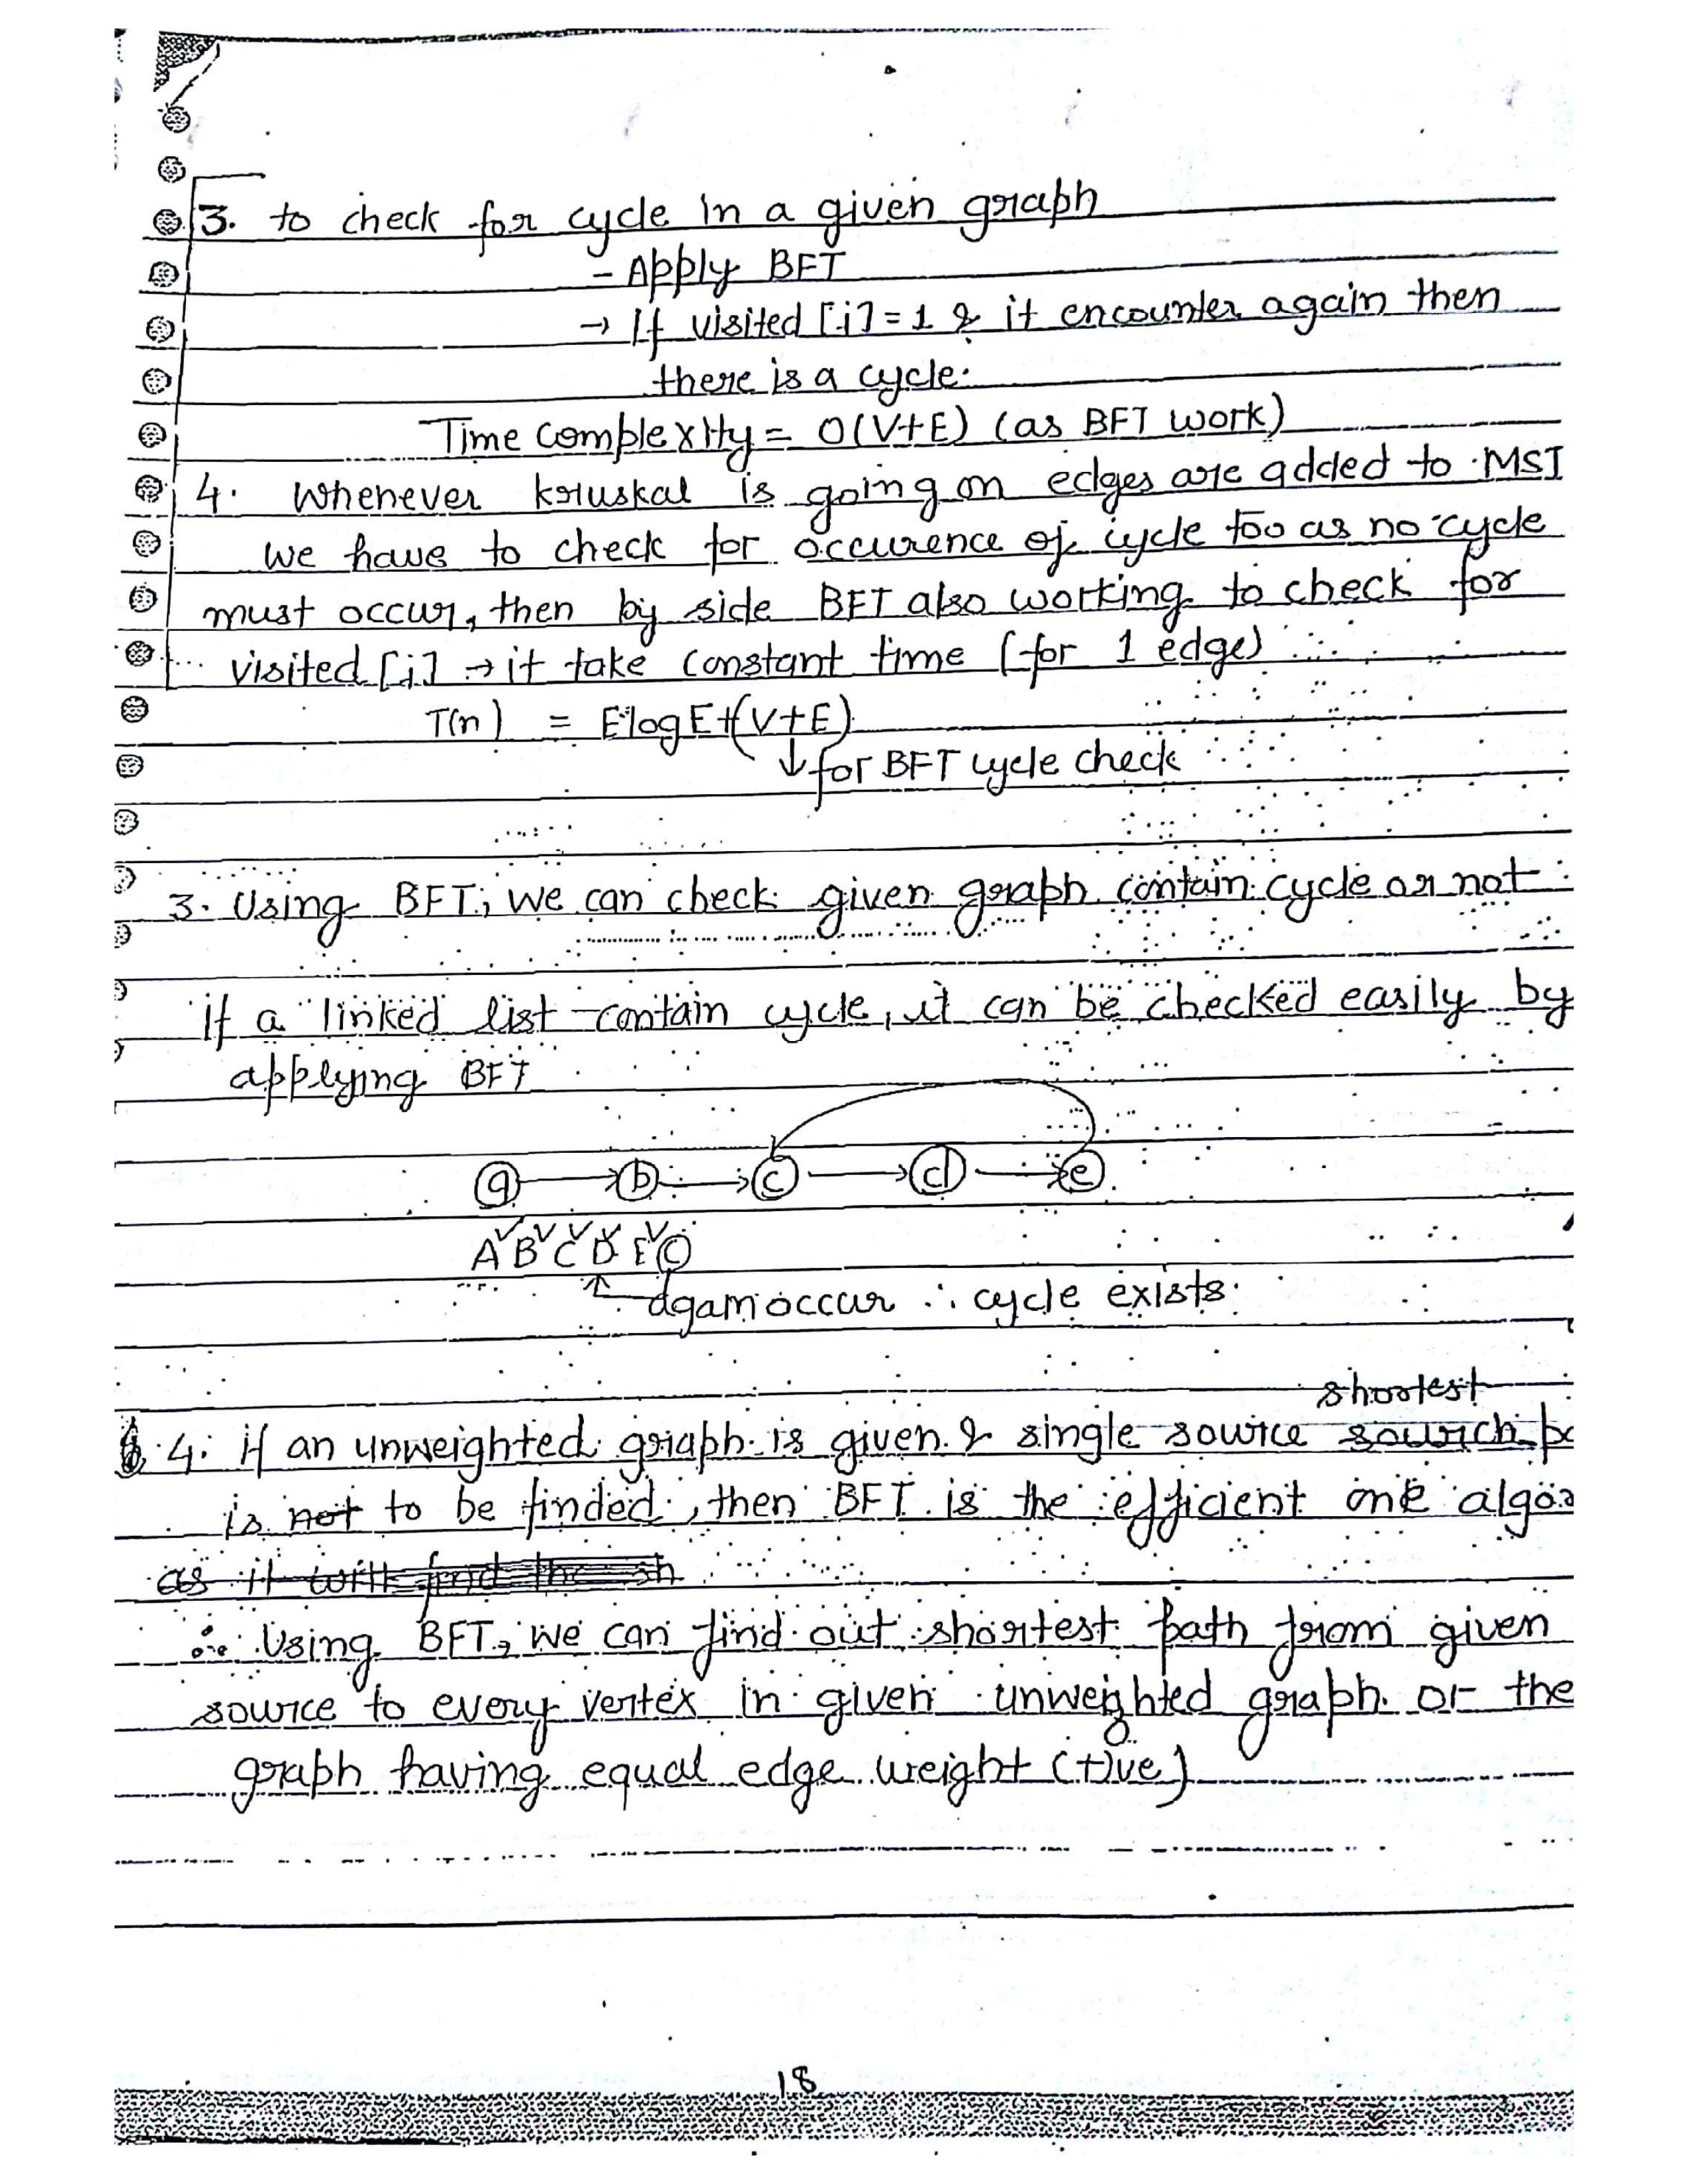 3. to check for cycle in a given graph
- Apply BFT
→ If visited [i] = 1 & it encounter again then
there is a cycle.
Time complexity = O(V+E) (as BFT work)
4. Whenever kruskal is going on edges are added to MST
we have to check for occurence of cycle too as no cycle
must occur, then by side BFT also working to check for
visited [i] → it take constant time (for 1 edge)
T(n) = E log E + (V+E)
↓ for BFT cycle check
3. Using BFT, we can check given graph contain cycle or not
if a linked list contain cycle, it can be checked easily by
applying BFT
a b c d e
A B C D E C
again occur ∴ cycle exists.
shortest
4. if an unweighted graph is given & single source sourch
is not to be finded, then BFT is the efficient one
as it will find the sh
∴ Using BFT, we can find out shortest path from given
source to every vertex in given unweighted graph or the
graph having equal edge weight (+)ve)
18